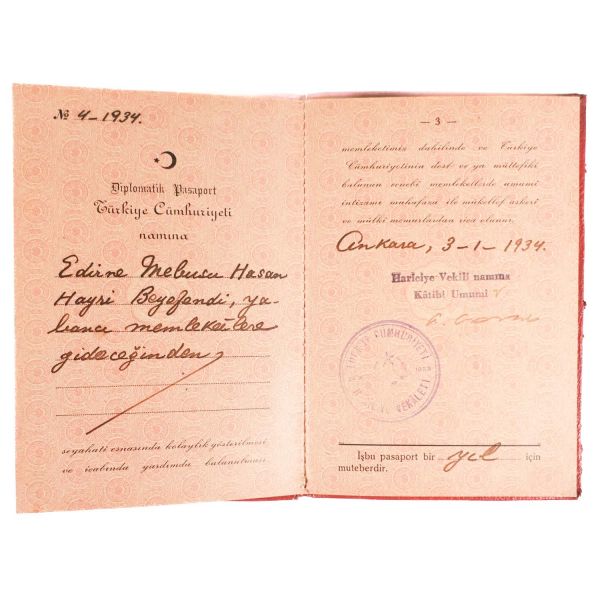 № 4-1934.
Diplomatik Pasaport
Türkiye Cümhuriyeti
namına
Edirne Mebusu Hasan
Hayri Beyefendi, ya-
bancı memleketlere
gideceğinden
seyahati esnasında kolaylık gösterilmesi
ve icabında yardımda bulunulması
— 3 —
memleketimiz dahilinde ve Türkiye
Cümhuriyetinin dost ve ya müttefiki
bulunan ecnebi memleketlerde umumi
intizamı muhafaza ile mükellef askeri
ve mülki memurlardan rica olunur.
Ankara, 3-1-1934.
Hariciye Vekili namına
Kâtibi Umumi
CUMHURİYETİ
VEKÂLETİ
İşbu pasaport bir yıl için
muteberdir.